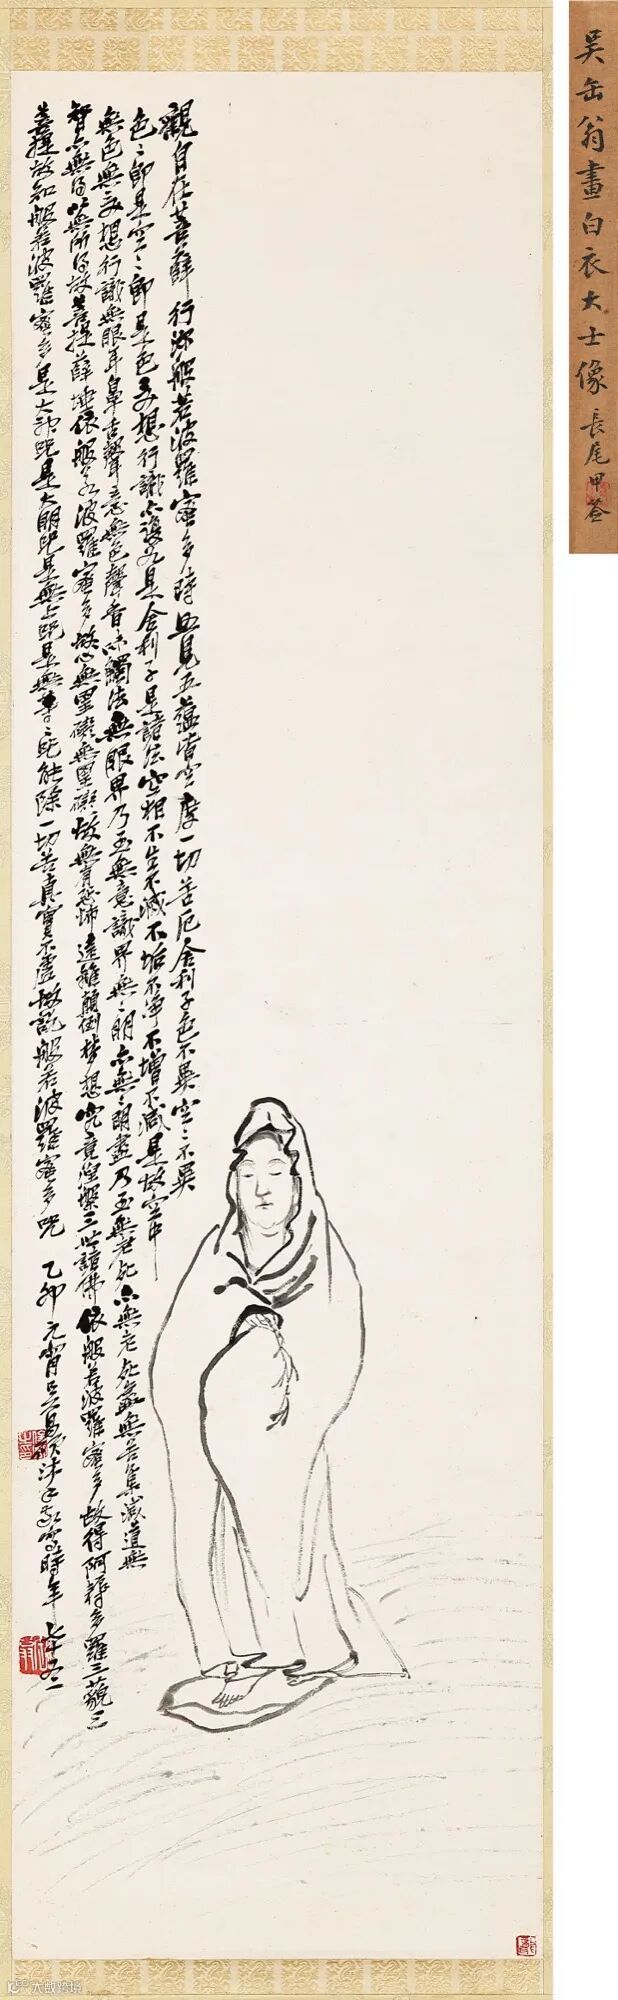 吳缶翁畫白衣大士像 長尾甲签
觀自在菩薩行深般若波羅蜜多時照見五蘊皆空度一切苦厄舍利子色不異空〻不異
色〻即是空〻即是色受想行識亦復如是舍利子是諸法空相不生不滅不垢不淨不增不減是故空中
無色無受想行識無眼耳鼻舌聲意無色聲香味觸法無眼界乃至無意識界無〻明亦無〻明盡乃至無老死亦無老死盡無苦集滅道無
智亦無得以無所得故菩提薩埵依般若波羅蜜多故心無罣礙無罣礙故無有恐怖遠離顛倒夢想究竟涅槃三世諸佛依般若波羅蜜多故得阿耨多羅三藐三
菩提故知般若波羅蜜多是大神咒是大明咒是無上咒是無等〻咒能除一切苦真實不虛故說般若波羅蜜多咒 乙卯元宵吳昌碩沐手敬寫時年七十又二
大数跨境